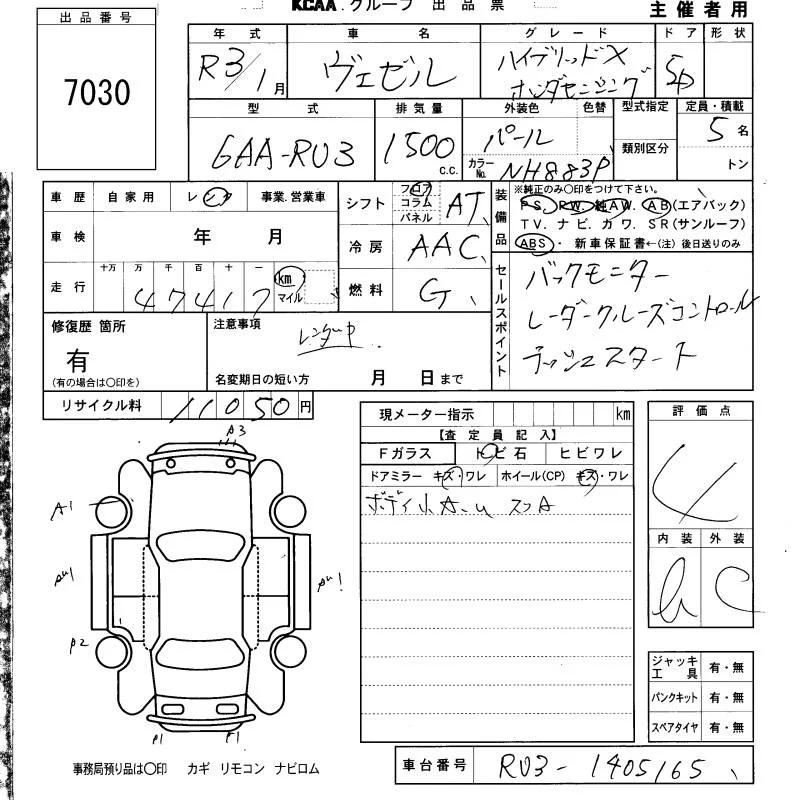 KCAA.グループ 出品票
主催者用
出品番号
7030
年式 車名 グレード ドア 形状
R3/1月 ヴェゼル ハイブリッドX
ホンダセンシング 5D
型式 排気量 外装色 色替 型式指定 定員・積載
6AA-RU3 1500 c.c. パール 5名
カラーNo. NH883P 類別区分 トン
車歴 自家用 レンタ 事業.営業車
車検 年 月
十万 万 千 百 十 一
走行 47417 km
マイル
シフト フロア コラム パネル AT
冷房 AAC
燃料 G
装備品 ※純正のみ〇印をつけて下さい。
PS. PW. 純AW. AB(エアバック)
TV. ナビ. カワ. SR(サンルーフ)
ABS ・ 新車保証書←(注) 後日送りのみ
セールスポイント
バックモニター
レーダークルーズコントロール
プッシュスタート
修復歴 箇所
有
(有の場合は〇印を)
注意事項
名変期日の短い方 月 日まで
リサイクル料 11050円
現メーター指示 km
【査定員記入】
Fガラス トビ石 ヒビワレ
ドアミラー キズ・ワレ ホイール(CP) キズ・ワレ
ボディ小A.u スリA
評価点
4
内装 外装
b C
A3
A1
AU1 AU1
A2
P1 F1
ジャッキ工具 有・無
パンクキット 有・無
スペアタイヤ 有・無
事務局預り品は〇印 カギ リモコン ナビロム
車台番号 RU3-1405165